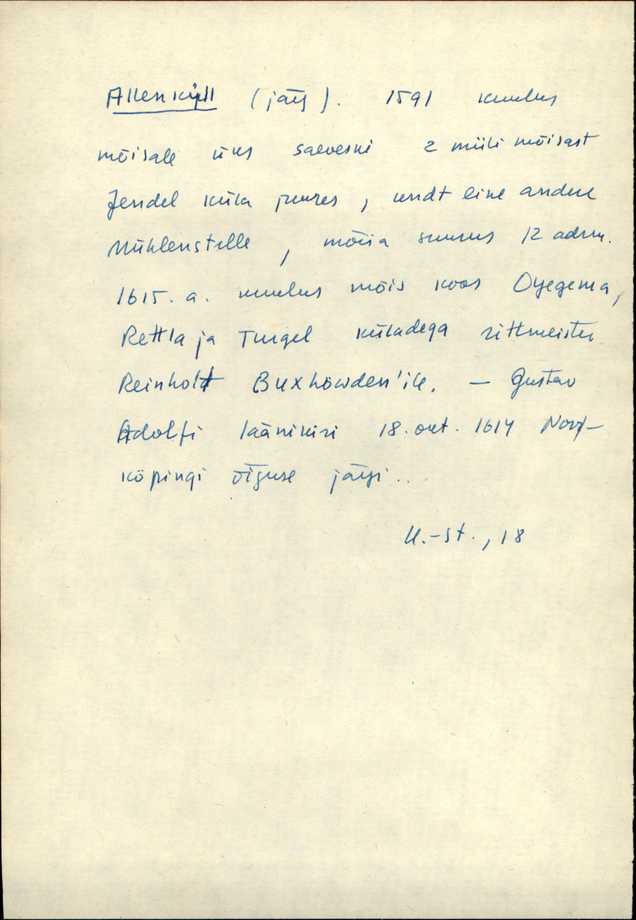 Allenküll (järg). 1591 kuulus
mõisale üks saeveski 2 miili mõisast
Jendel küla juures, undt eine andere
Mühlenstelle, mõisa suurus 12 adrm.
1615. a. kuulus mõis koos Oyegema,
Rettla ja Turgel küladega rittmeister
Reinholt Buxhöwden'ile. — Gustav
Adolfi läänikiri 18. okt. 1614 Norr-
köpingi õiguse järgi..
U.-St., 18